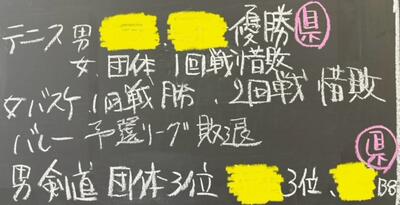 テニス男 優勝 県
女 団体 1回戦惜敗
女バスケ 1回戦 勝、2回戦 惜敗
バレー 予選リーグ敗退
男剣道 団体3位 3位、B8 県